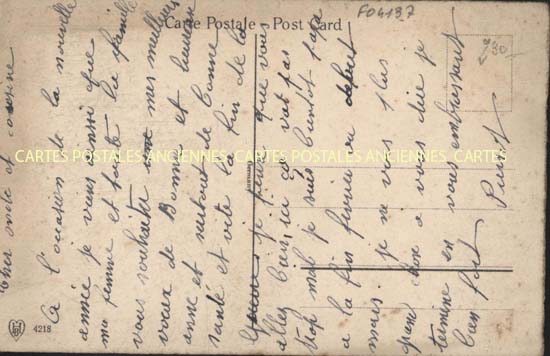 Carte Postale - Post Card
F04137
30
CARTES POSTALES ANCIENNES CARTES POSTALES ANCIENNES CARTES POSTALES ANCIENNES
4218
Cher oncle et cousine
A l'occasion de la nouvelle
année je viens ainsi que
ma femme et toute la famille
vous souhaiter mes meilleurs
voeux de Bonne et heureuse
anne et surtout de bonne
santé et vite la fin de la
guerre je pense que vous
allez bien, ici ça vat pas
trop mal je suis bientot
a la fin fevrier ou debut
mars. je ne vois plus
grand chose a vous dire je
termine en vous embrassant
bien fort